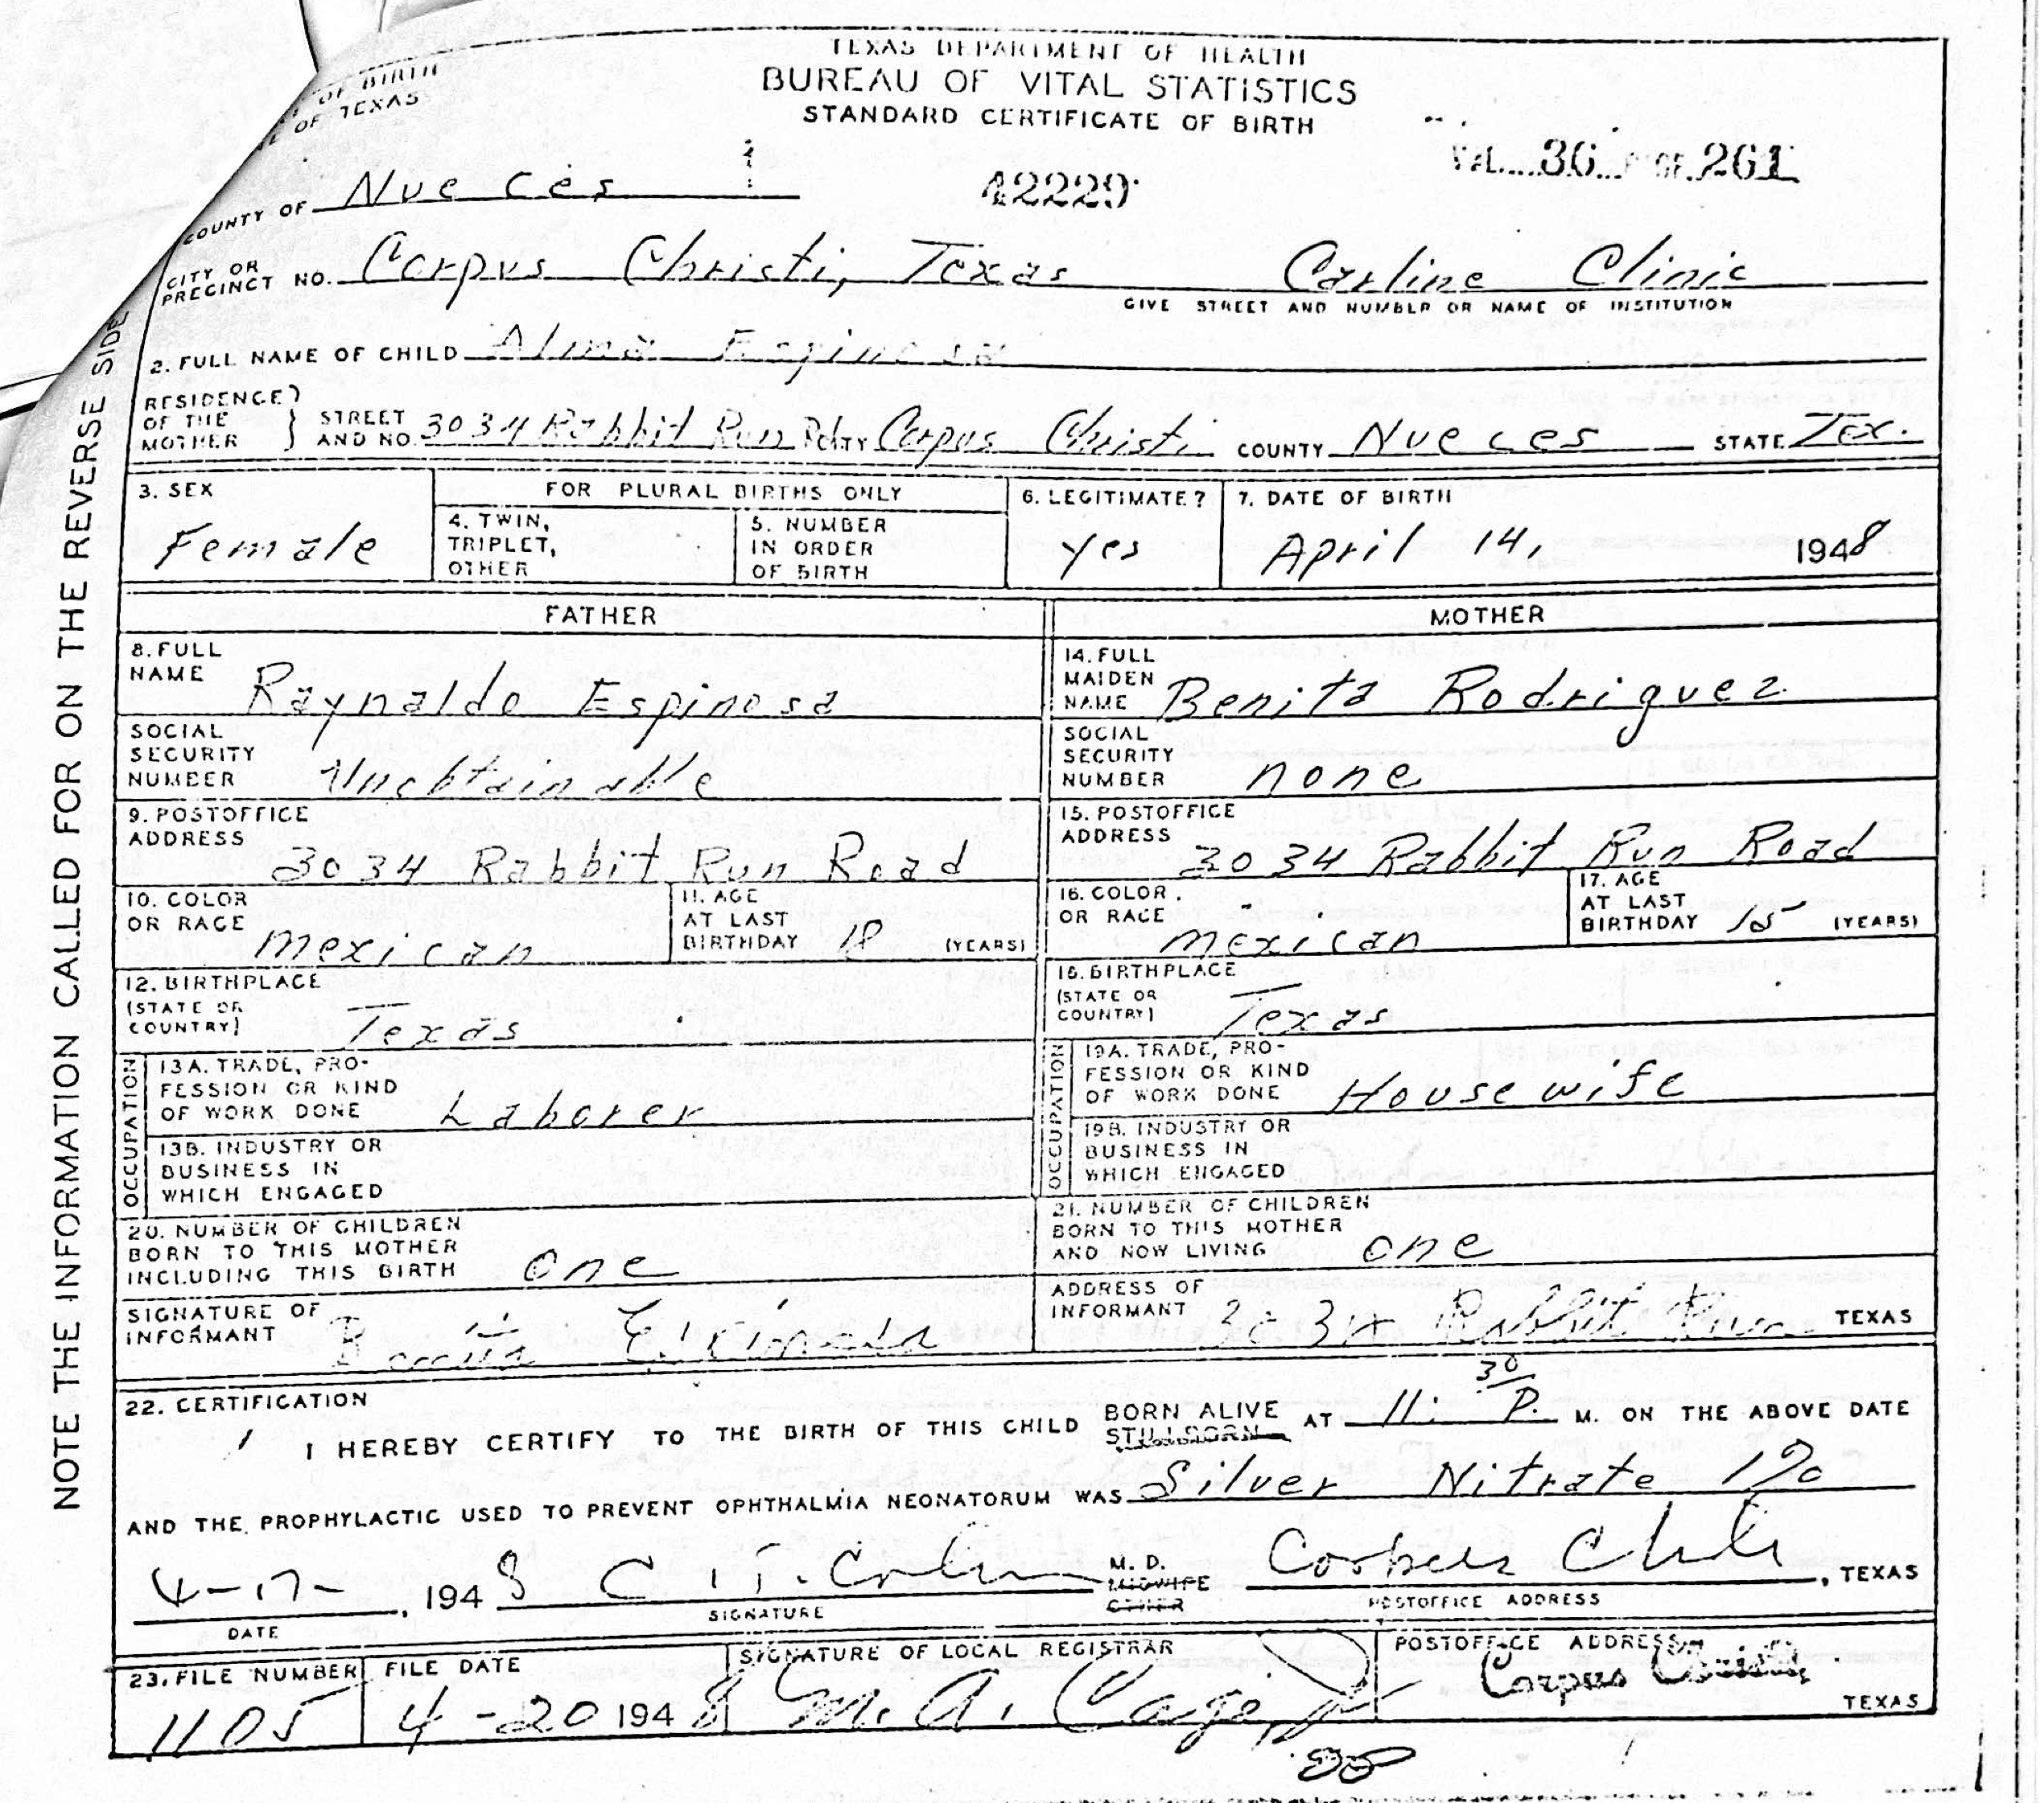 OF BIRTH
OF TEXAS
TEXAS DEPARTMENT OF HEALTH
BUREAU OF VITAL STATISTICS
STANDARD CERTIFICATE OF BIRTH
36 261
42229
COUNTY OF Nueces
CITY OR PRECINCT NO. Corpus Christi, Texas Carline Clinic
GIVE STREET AND NUMBER OR NAME OF INSTITUTION
2. FULL NAME OF CHILD Alma Espinosa
RESIDENCE OF THE MOTHER } STREET AND NO. 3034 Rabbit Run Rd CITY Corpus Christi COUNTY Nueces STATE Tex.
3. SEX Female
FOR PLURAL BIRTHS ONLY
4. TWIN, TRIPLET, OTHER
5. NUMBER IN ORDER OF BIRTH
6. LEGITIMATE? yes
7. DATE OF BIRTH April 14, 1948
FATHER
MOTHER
8. FULL NAME Raynaldo Espinosa
14. FULL MAIDEN NAME Benita Rodriguez
SOCIAL SECURITY NUMBER Unobtainable
SOCIAL SECURITY NUMBER none
9. POSTOFFICE ADDRESS 3034 Rabbit Run Road
15. POSTOFFICE ADDRESS 3034 Rabbit Run Road
10. COLOR OR RACE mexican
11. AGE AT LAST BIRTHDAY 18 (YEARS)
16. COLOR OR RACE mexican
17. AGE AT LAST BIRTHDAY 15 (YEARS)
12. BIRTHPLACE (STATE OR COUNTRY) Texas
18. BIRTHPLACE (STATE OR COUNTRY) Texas
OCCUPATION
13A. TRADE, PROFESSION OR KIND OF WORK DONE Laborer
OCCUPATION
19A. TRADE, PROFESSION OR KIND OF WORK DONE Housewife
13B. INDUSTRY OR BUSINESS IN WHICH ENGAGED
19B. INDUSTRY OR BUSINESS IN WHICH ENGAGED
20. NUMBER OF CHILDREN BORN TO THIS MOTHER INCLUDING THIS BIRTH one
21. NUMBER OF CHILDREN BORN TO THIS MOTHER AND NOW LIVING one
SIGNATURE OF INFORMANT Benita Espinosa
ADDRESS OF INFORMANT 3034 Rabbit Run TEXAS
22. CERTIFICATION
I HEREBY CERTIFY TO THE BIRTH OF THIS CHILD BORN ALIVE STILLBORN AT 11:30 P. M. ON THE ABOVE DATE
AND THE PROPHYLACTIC USED TO PREVENT OPHTHALMIA NEONATORUM WAS Silver Nitrate 1%
4-17-, 1948 M. D. MIDWIFE OTHER Corpus Christi, TEXAS
DATE SIGNATURE POSTOFFICE ADDRESS
23. FILE NUMBER 1105
FILE DATE 4-20 1948
SIGNATURE OF LOCAL REGISTRAR M. A. Cage, Jr
POSTOFFICE ADDRESS Corpus Christi, TEXAS
NOTE THE INFORMATION CALLED FOR ON THE REVERSE SIDE